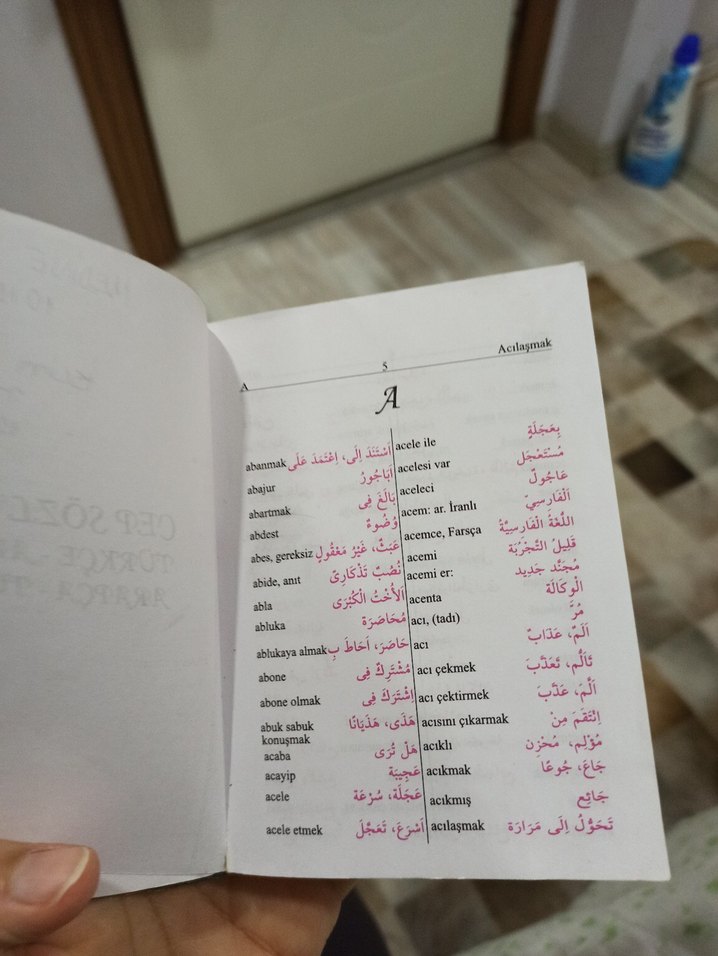 A 5 Acılaşmak
A
abanmak اَسْتَنَدَ اِلَى، اِعْتَمَدَ عَلَى
abajur اَبَاجُورٌ
abartmak بَالَغَ فِى
abdest وُضُوءٌ
abes, gereksiz عَبَثٌ، غَيْرُ مَعْقُولٍ
abide, anıt نُصُبٌ تَذْكَارِىٌّ
abla اَلْاُخْتُ الْكُبْرَى
abluka مُحَاصَرَة
ablukaya almak حَاصَرَ، اَحَاطَ بِ
abone مُشْتَرِكٌ فِى
abone olmak اِشْتَرَكَ فِى
abuk sabuk هَذَى، هَذَيَانًا
konuşmak
acaba هَلْ تُرَى
acayip عَجِيبَة
acele عَجَلَة، سُرْعَة
acele etmek اَسْرَعَ، تَعَجَّلَ
acele ile بِعَجَلَةٍ
acelesi var مُسْتَعْجَل
aceleci عَاجُولٌ
acem: ar. İranlı اَلْفَارِسِيّ
acemce, Farsça اللُّغَةُ الْفَارِسِيَّةُ
acemi قَلِيلُ التَّجْرُبَة
acemi er: مُجَنَّد جَدِيد
acenta الْوِكَالَة
acı, (tadı) مُرَّ
acı اَلَمٌ، عَذَابٌ
acı çekmek تَاَلَّمَ، تَعَذَّبَ
acı çektirmek اَلَّمَ، عَذَّبَ
acısını çıkarmak اِنْتَقَمَ مِنْ
acıklı مُؤْلِم، مُحْزِن
acıkmak جَاعَ، جُوعًا
acıkmış جَائِع
acılaşmak تَحَوُّلُ اِلَى مَرَارَة